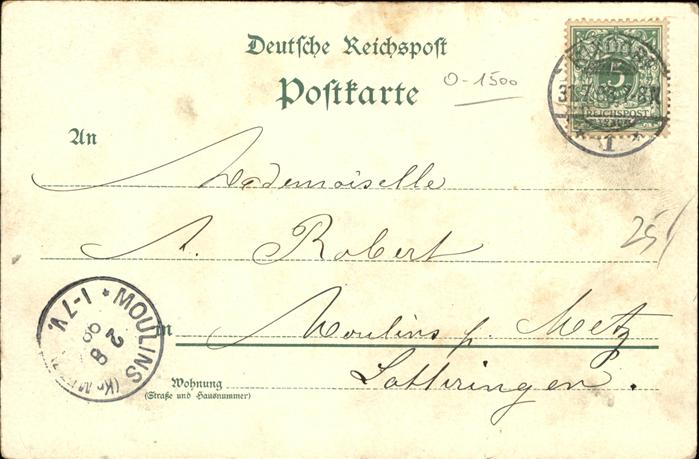 Deutsche Reichspost
Postkarte
0-1500
5
REICHSPOST
31.7.98.7-8N.
1
An Mademoiselle
A. Robert
25
in Moulins p. Metz
Lothringen.
Wohnung
(Straße und Hausnummer)
MOULINS
2 8 98
1-7V.